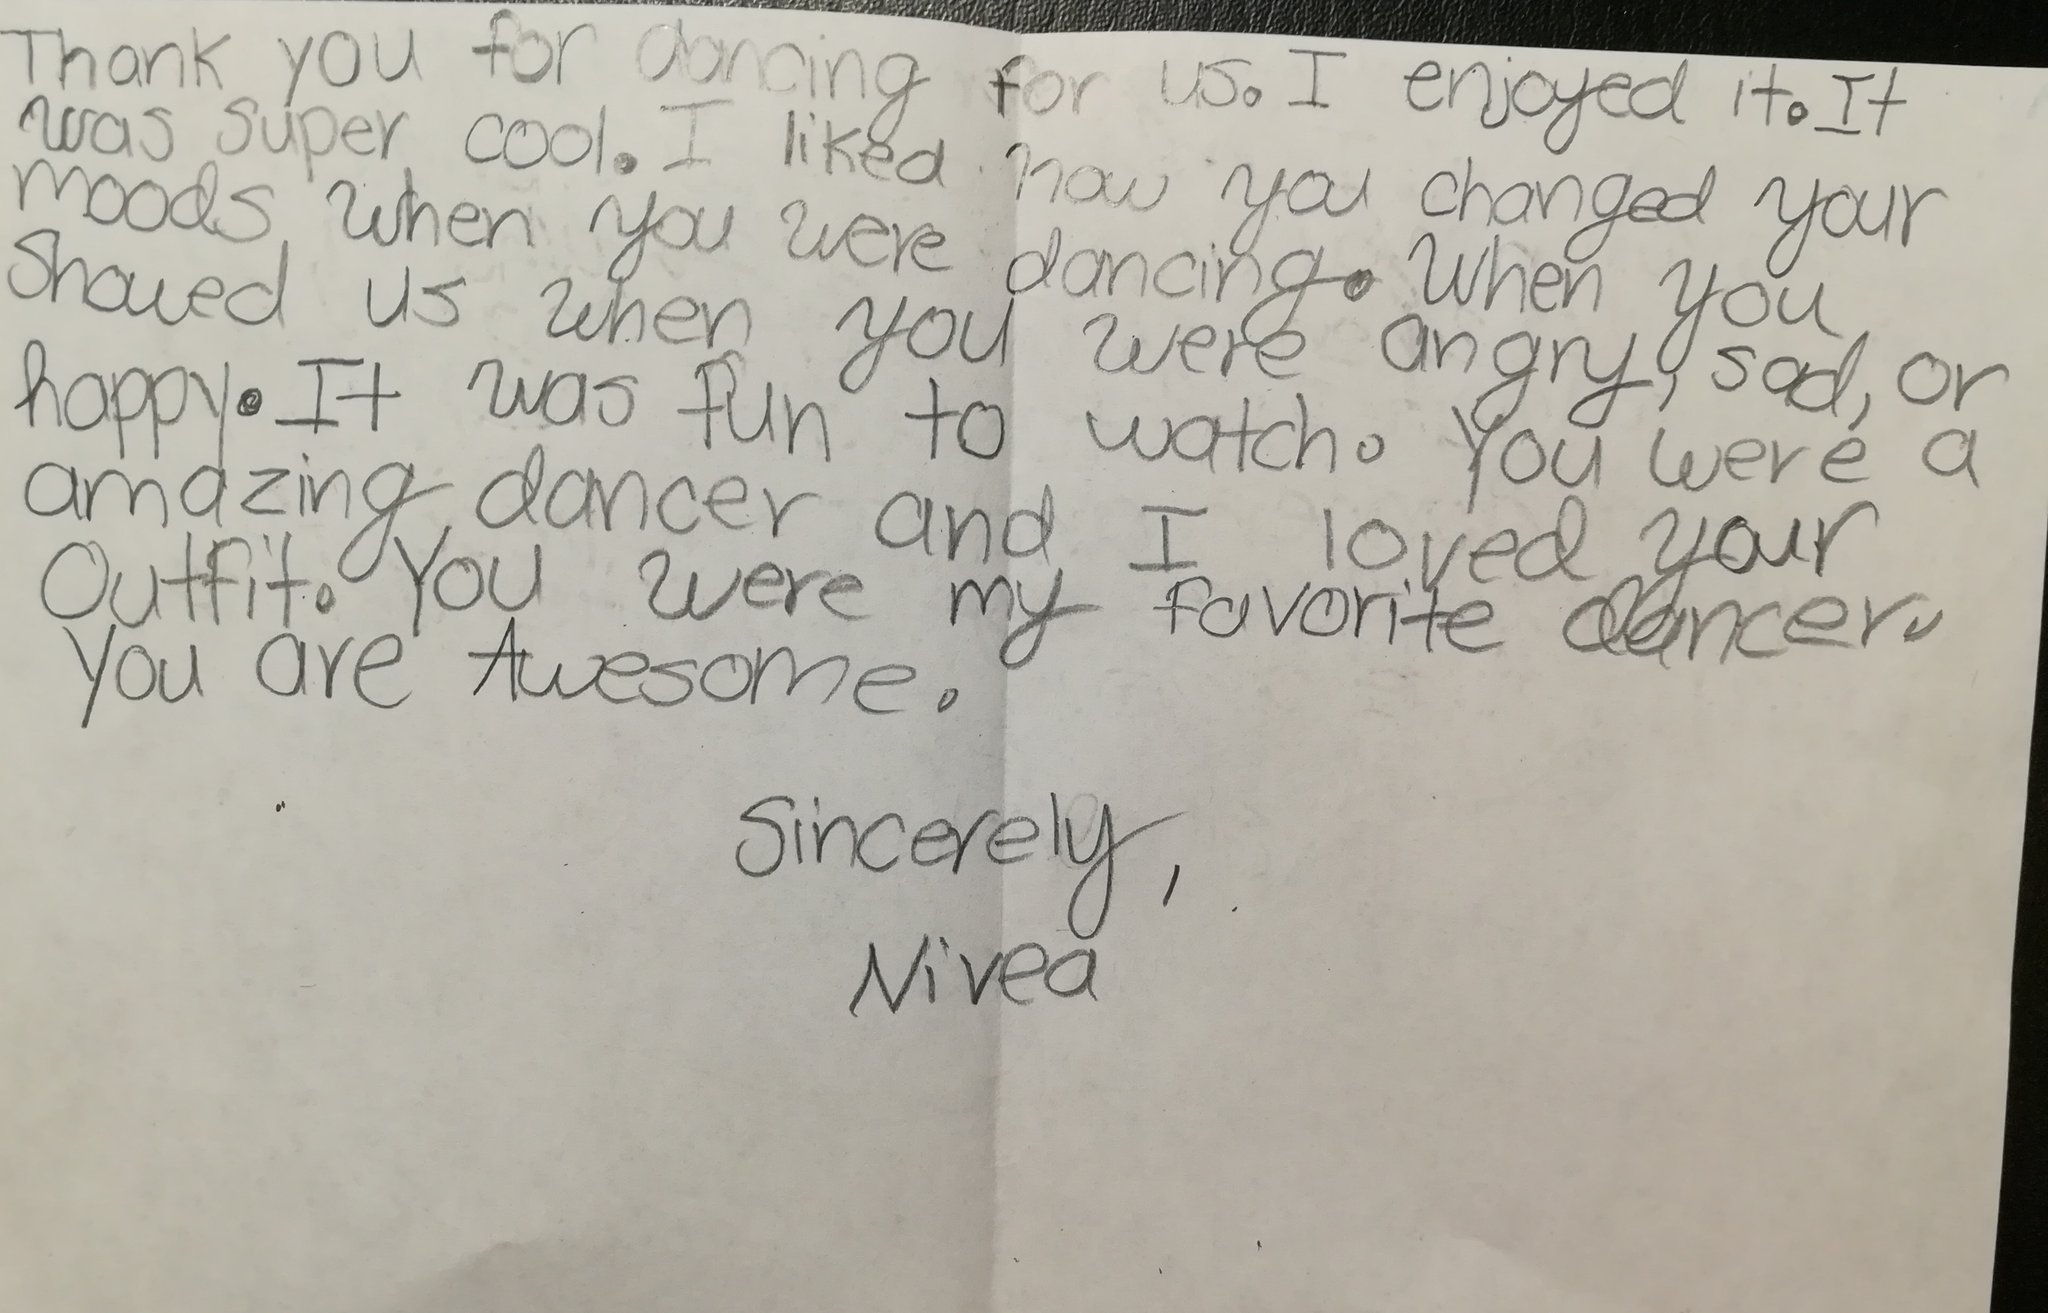 Thank you for dancing for us. I enjoyed it. It
was super cool. I liked how you changed your
moods when you were dancing. When you
Showed us when you were angry, sad, or
happy. It was fun to watch. You were a
amazing dancer and I loved your
Outfit. You were my favorite dancer.
You are Awesome.
Sincerely,
Nivea